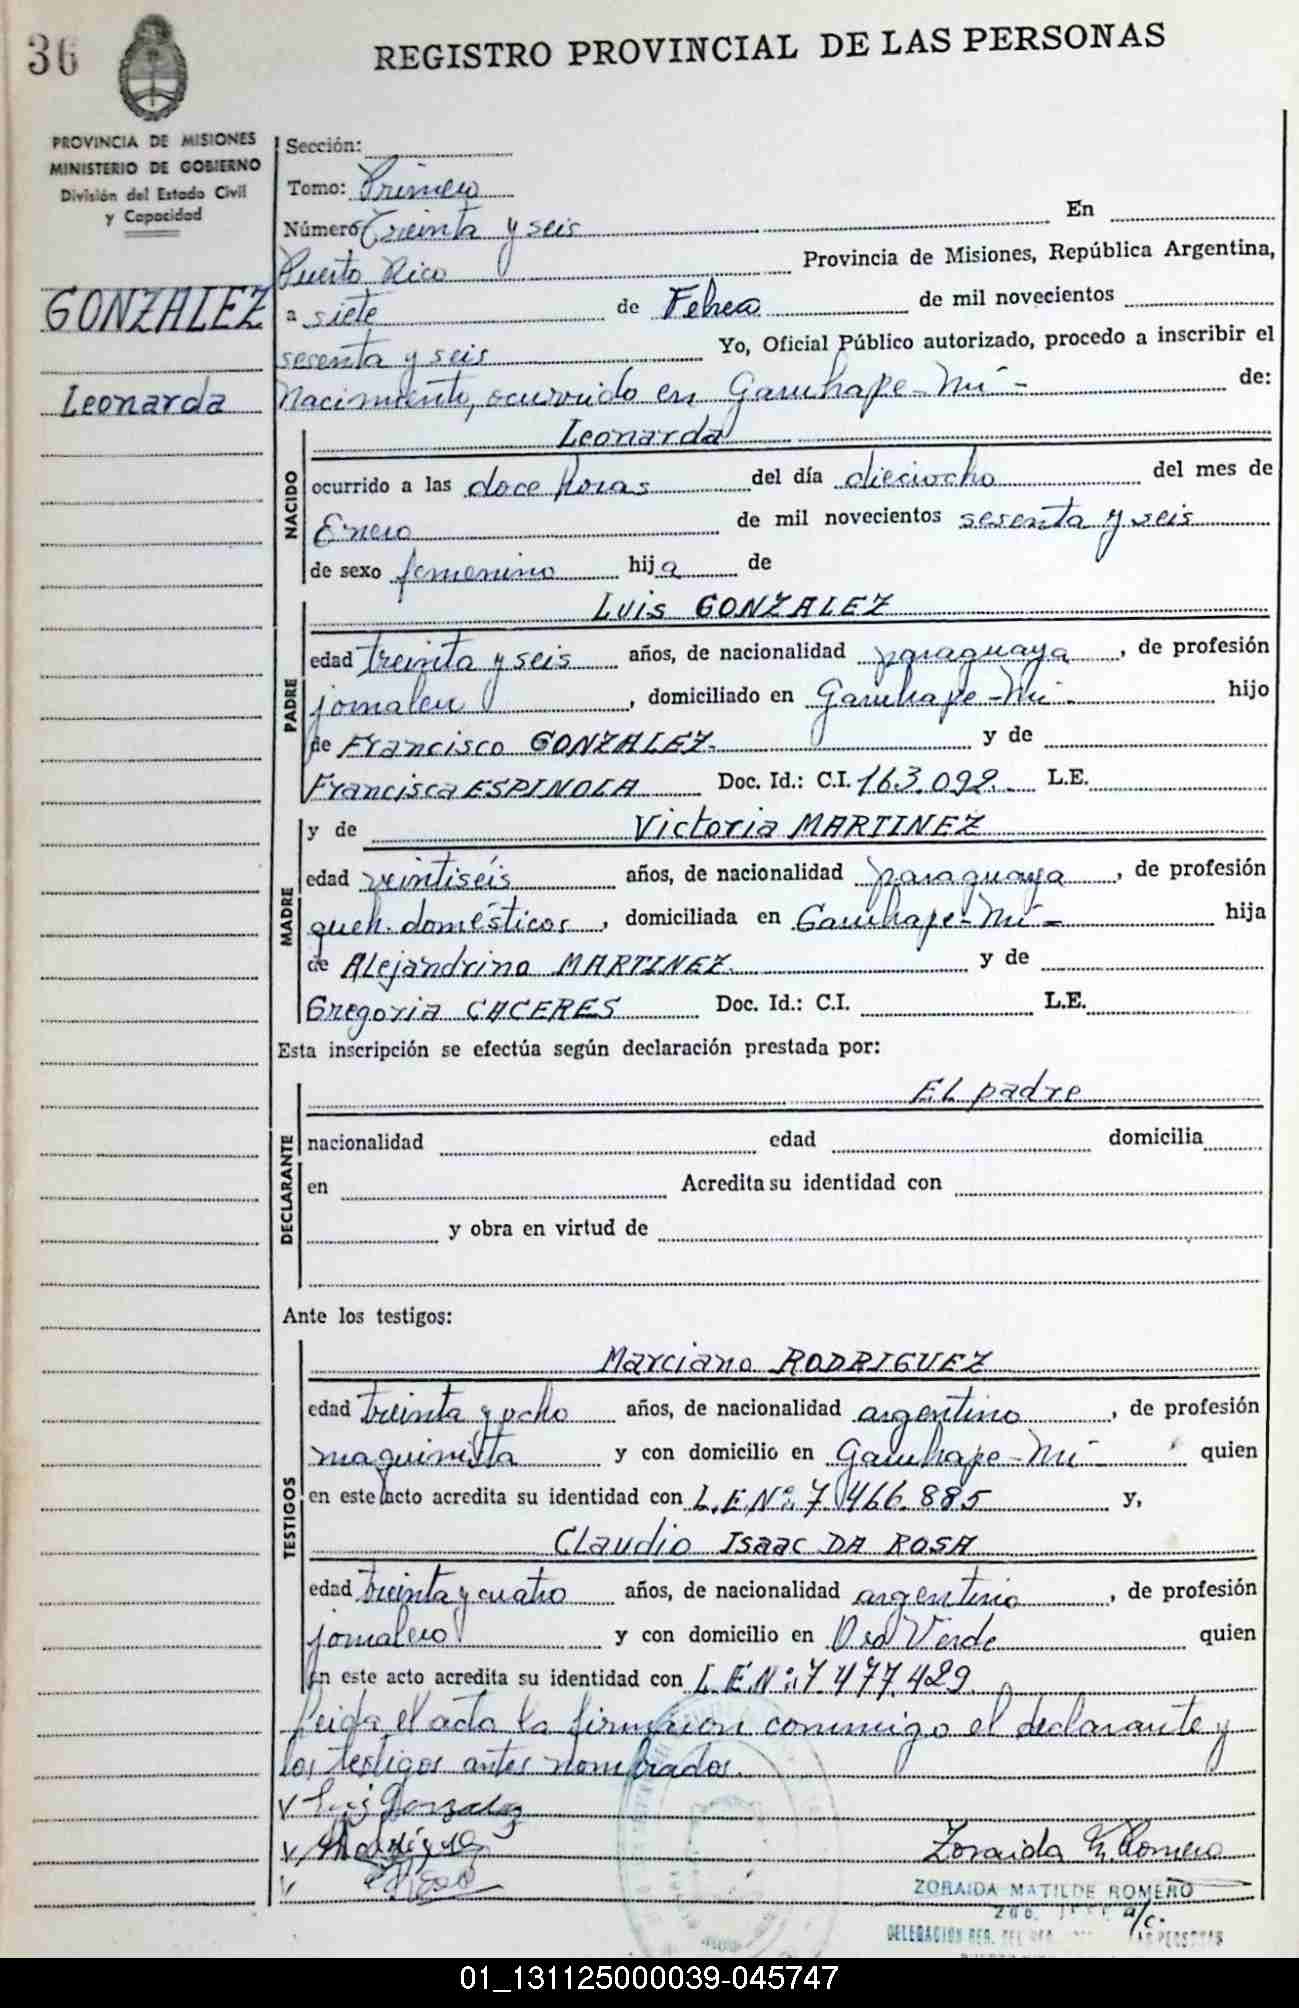 36
REGISTRO PROVINCIAL DE LAS PERSONAS
PROVINCIA DE MISIONES
MINISTERIO DE GOBIERNO
División del Estado Civil
y Capacidad
GONZALEZ
Leonarda
Sección:
Tomo: Primero
Número Treinta y seis En
Puerto Rico Provincia de Misiones, República Argentina,
a siete de Febrero de mil novecientos
sesenta y seis Yo, Oficial Público autorizado, procedo a inscribir el
Nacimiento, ocurrido en Garuhape-Mí- de:
NACIDO
Leonarda
ocurrido a las doce horas del día dieciocho del mes de
Enero de mil novecientos sesenta y seis
de sexo femenino hija de
PADRE
Luis GONZALEZ
edad treinta y seis años, de nacionalidad paraguaya, de profesión
jornalero, domiciliado en Garuhape-Mí- hijo
de Francisco GONZALEZ. y de
Francisca ESPINOLA Doc. Id.: C.I. 163.092. L.E.
MADRE
y de Victoria MARTINEZ
edad veintiséis años, de nacionalidad paraguaya, de profesión
queh. domésticos, domiciliada en Garuhape-Mí- hija
de Alejandrino MARTINEZ. y de
Gregoria CACERES Doc. Id.: C.I. L.E.
Esta inscripción se efectúa según declaración prestada por:
DECLARANTE
El padre
nacionalidad edad domicilia
en Acredita su identidad con
y obra en virtud de
Ante los testigos:
TESTIGOS
Marciano RODRIGUEZ
edad treinta y ocho años, de nacionalidad argentino, de profesión
maquinista y con domicilio en Garuhape-Mí- quien
en este acto acredita su identidad con L.E.Nº: 7.466.885 y,
Claudio Isaac DA ROSA
edad treinta y cuatro años, de nacionalidad argentino, de profesión
jornalero y con domicilio en Oro Verde quien
en este acto acredita su identidad con L.E.Nº: 7.477.429
Leida el acta la firmaron conmigo el declarante y
los testigos antes nombrados.
V Luis Gonzalez
V MRodriguez
V
Zoraida M. Romero
ZORAIDA MATILDE ROMERO
a/c.
DELEGACION REG. DEL LAS PERSONAS
01_131125000039-045747